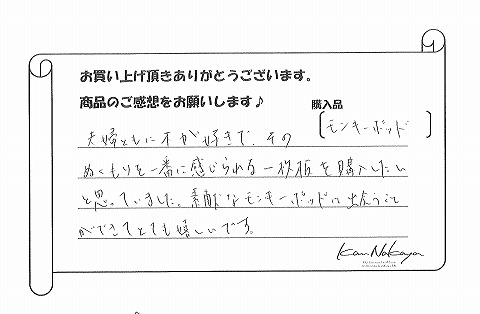 お買い上げ頂きありがとうございます。
商品のご感想をお願いします♪
購入品
モンキーポッド
夫婦ともに木が好きで、その
ぬくもりを一番に感じられる一枚板を購入したい
と思っていました。素敵なモンキーポッドに出会うこと
ができてとても嬉しいです。